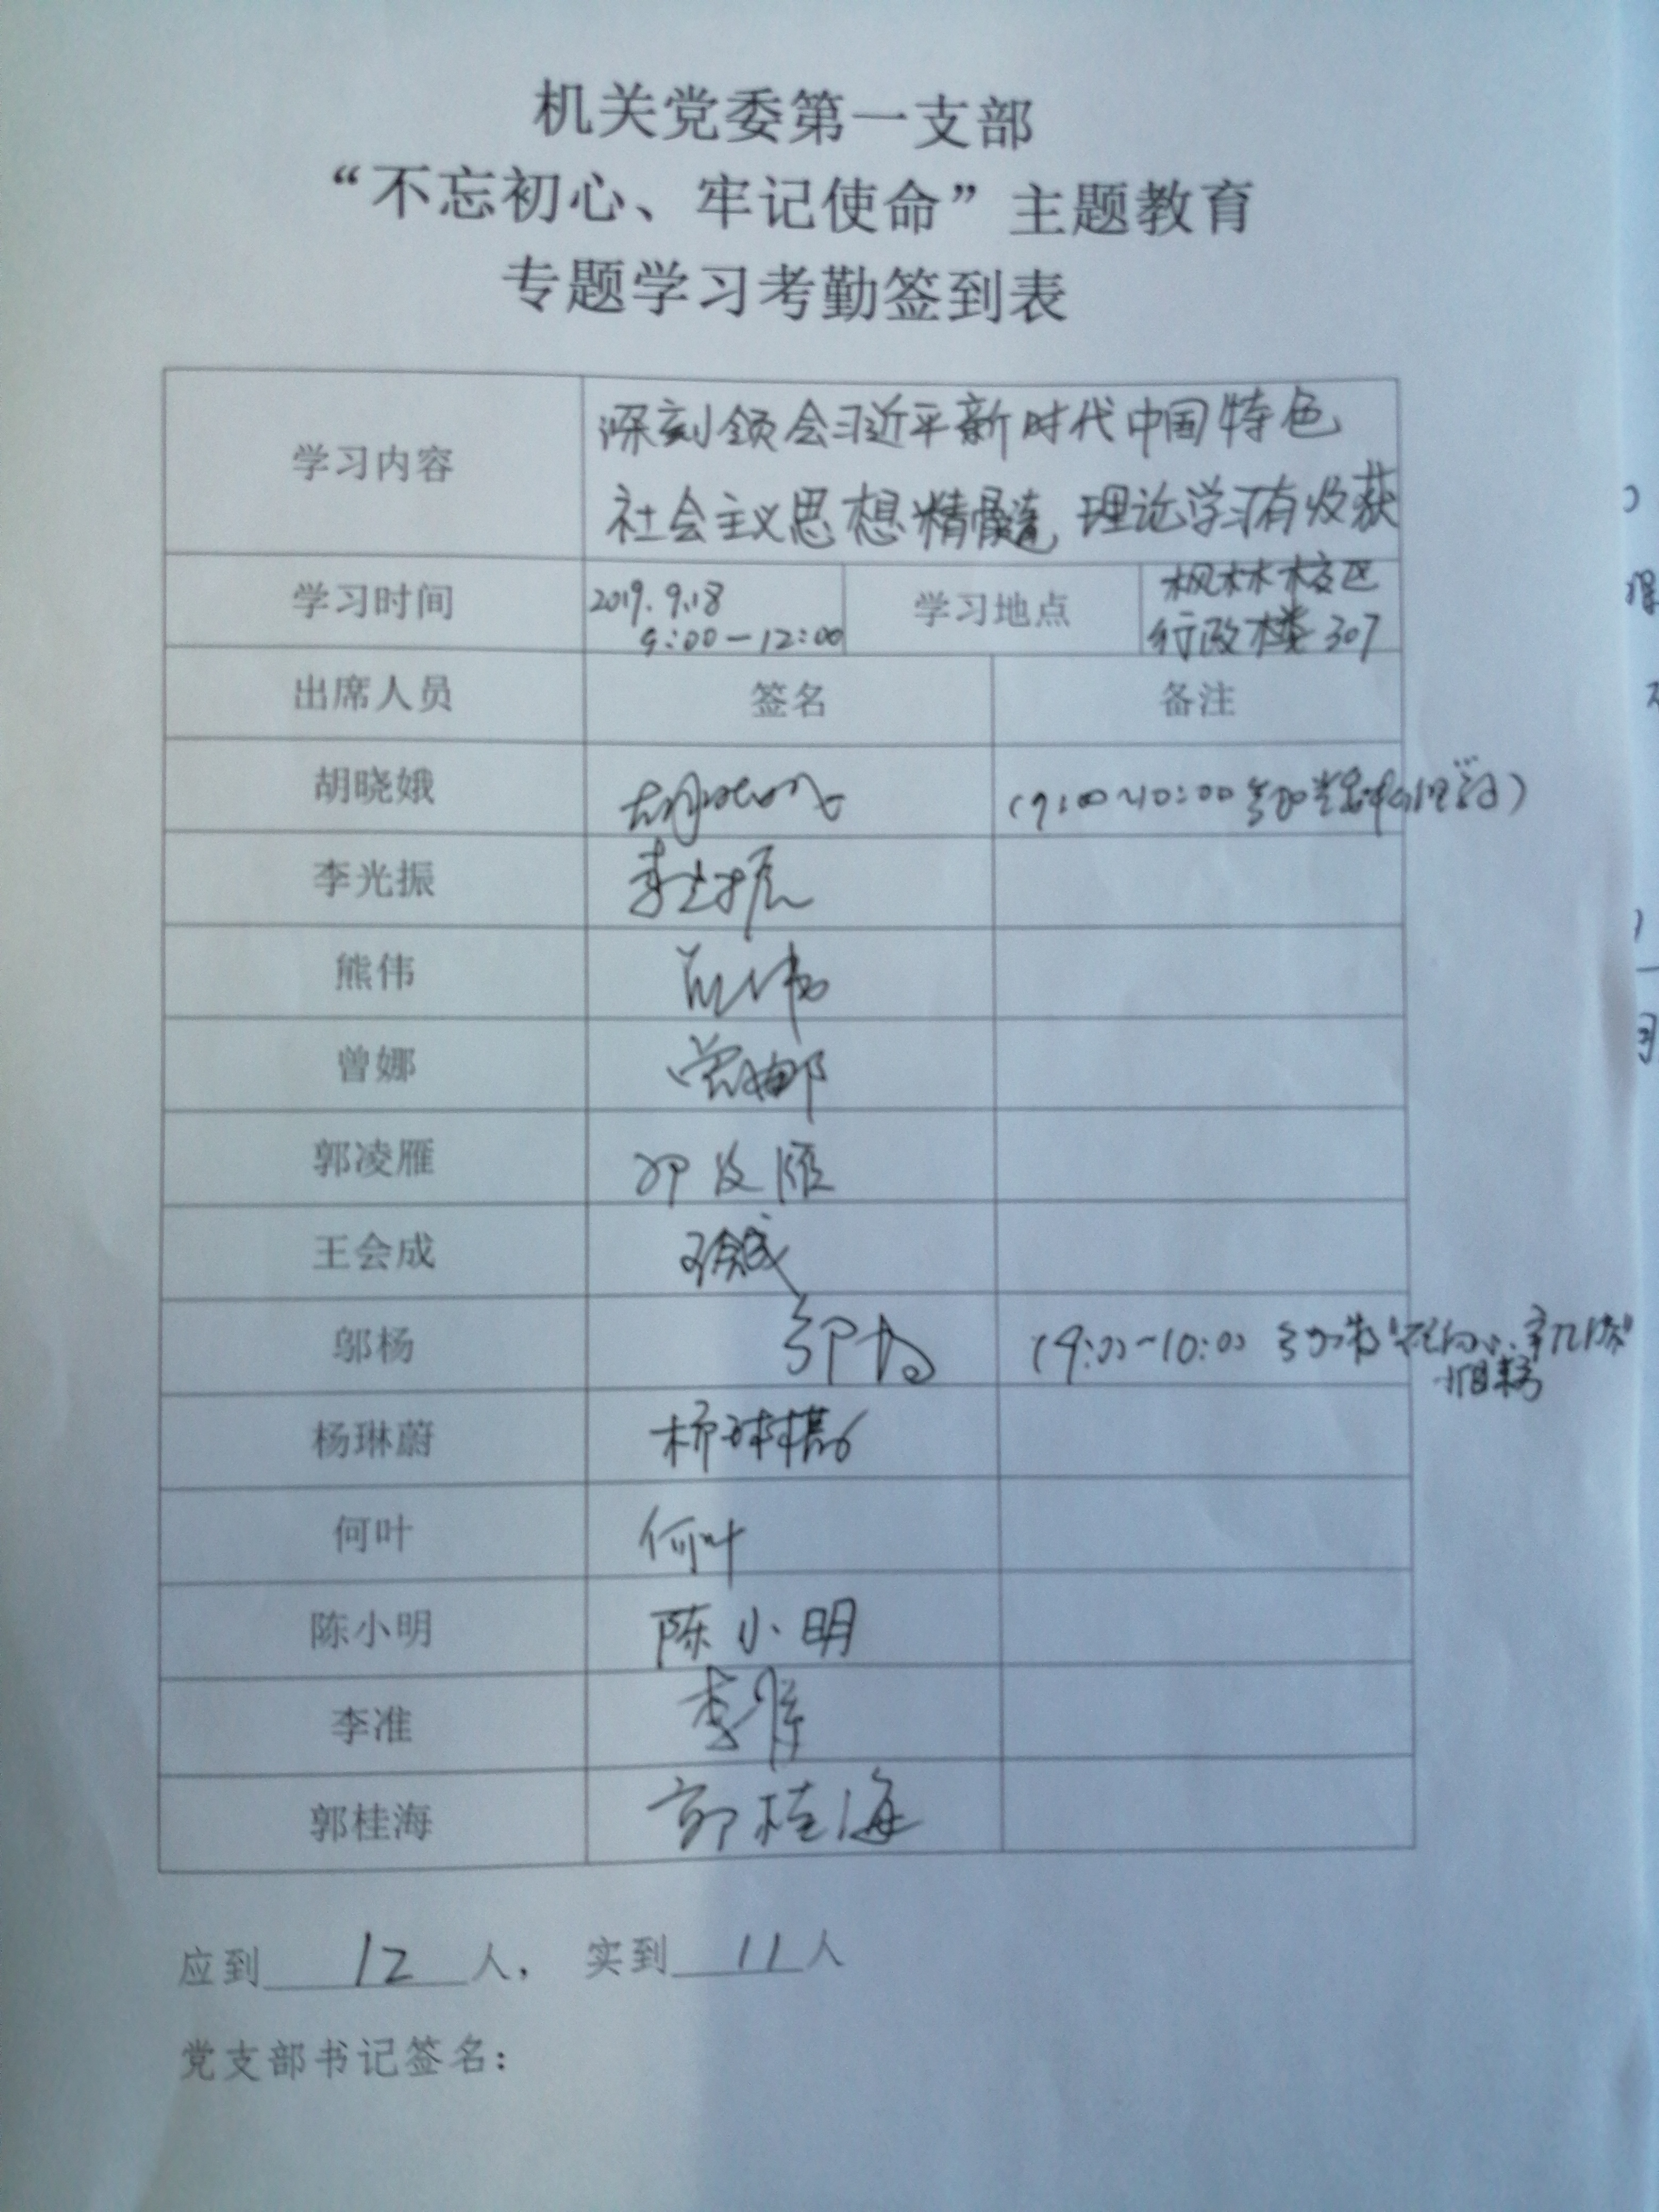 机关党委第一支部
“不忘初心、牢记使命”主题教育
专题学习考勤签到表
学习内容 深刻领会习近平新时代中国特色
社会主义思想精髓 理论学习有收获
学习时间 2019.9.18 9:00-12:00 学习地点 枫林校区 行政楼307
出席人员 签名 备注
胡晓娥 胡晓娥 (9:00~10:00 参加)
李光振 李光振
熊伟 熊伟
曾娜 曾娜
郭凌雁 郭凌雁
王会成 王会成
邬杨 邬杨 (9:00~10:00 参加
杨琳蔚 杨琳蔚
何叶 何叶
陈小明 陈小明
李准 李准
郭桂海 郭桂海
应到 12 人， 实到 11 人
党支部书记签名：